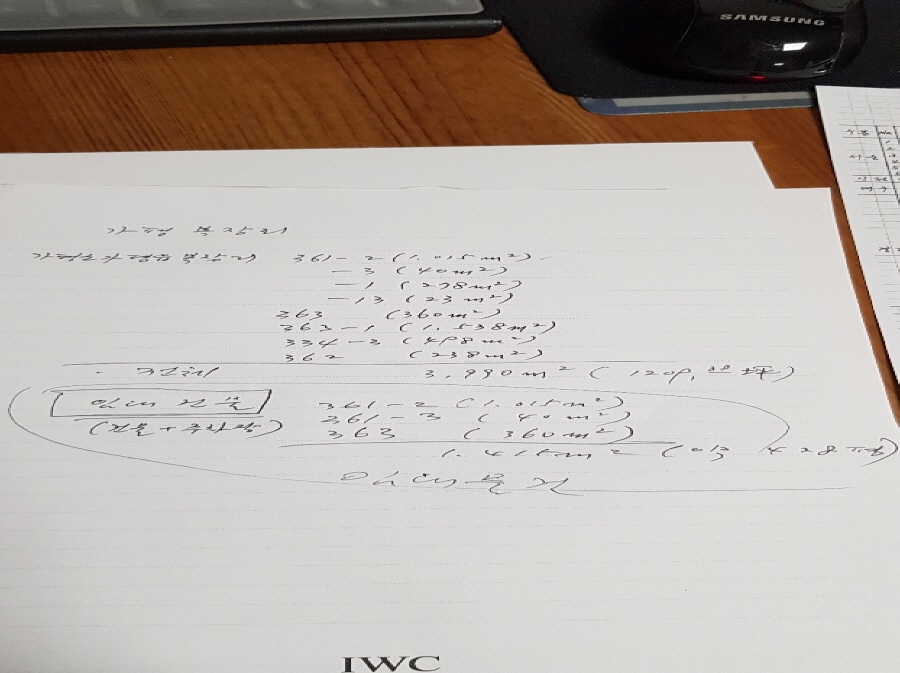 SAMSUNG
가평 복장리
가평군 가평읍 복장리 361-2 (1.015m²)
-3 (40m²)
-1 (278m²)
-13 (23m²)
363 (360m²)
363-1 (1.538m²)
334-3 (498m²)
362 (238m²)
전체 3.990m² (1209, 坪)
임대건물 361-2 (1.015m²)
361-3 (40m²)
(건물+주차장) 363 (360m²)
1.415m² (약 428평)
임대물건
IWC